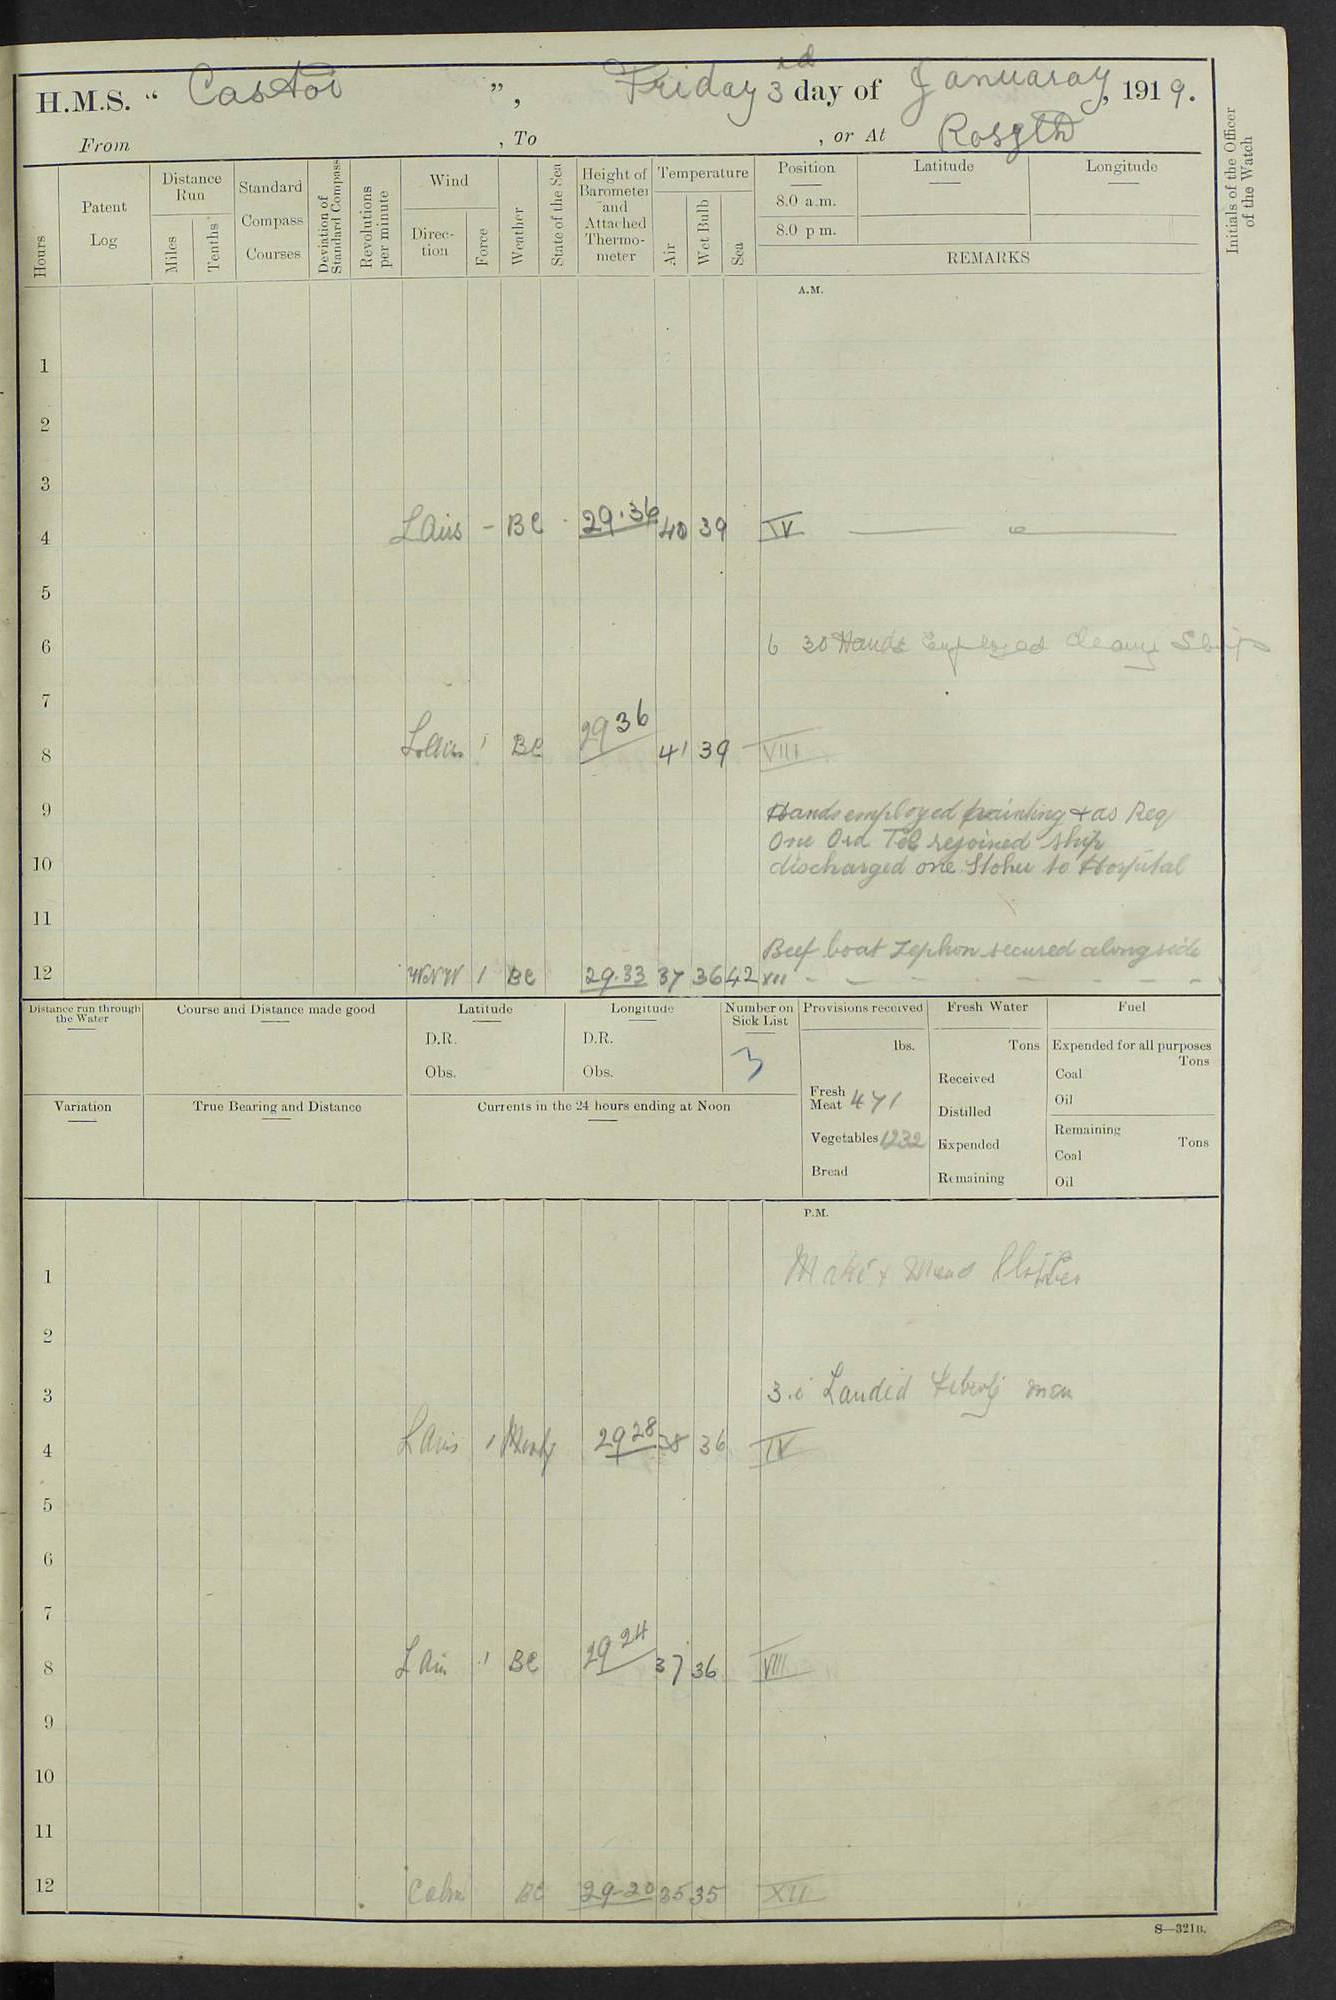 H.M.S. “ Castor ”, Friday 3rd day of January, 1919.
From , To , or At Rosyth
Hours
Patent Log
Distance Run
Miles
Tenths
Standard Compass Courses
Deviation of Standard Compass
Revolutions per minute
Wind
Direction
Force
Weather
State of the Sea
Height of Barometer and Attached Thermometer
Temperature
Air
Wet Bulb
Sea
Position
8.0 a.m.
8.0 p.m.
Latitude
Longitude
REMARKS
Initials of the Officer of the Watch
A.M.
1
2
3
4 L Airs - BC 29.36 40 39 IV
5
6 6 30 Hands Employed Cleang Ship
7
8 L Airs 1 BC 29 36 41 39 VIII
9 Hands employed painting + as Req
One Ord Tel rejoined ship
10 discharged one Stoker to Hospital
11
Beef boat secured alongside
12 WNW 1 BC 29.33 37 36 42 XII
Distance run through the Water
Course and Distance made good
Latitude
D.R.
Obs.
Longitude
D.R.
Obs.
Number on Sick List
3
Provisions received
lbs.
Fresh Meat 471
Vegetables 1232
Bread
Fresh Water
Tons
Received
Distilled
Expended
Remaining
Fuel
Expended for all purposes
Tons
Coal
Oil
Remaining
Tons
Coal
Oil
Variation
True Bearing and Distance
Currents in the 24 hours ending at Noon
P.M.
1 Make + Mend Clothes
2
3 3.0 Landed Liberty men
4 L Airs 1 29 28 38 36 IV
5
6
7
8 L Air 1 BC 29 24 37 36 VIII
9
10
11
12 Calm BC 29-20 35 35 XII
S—321B.